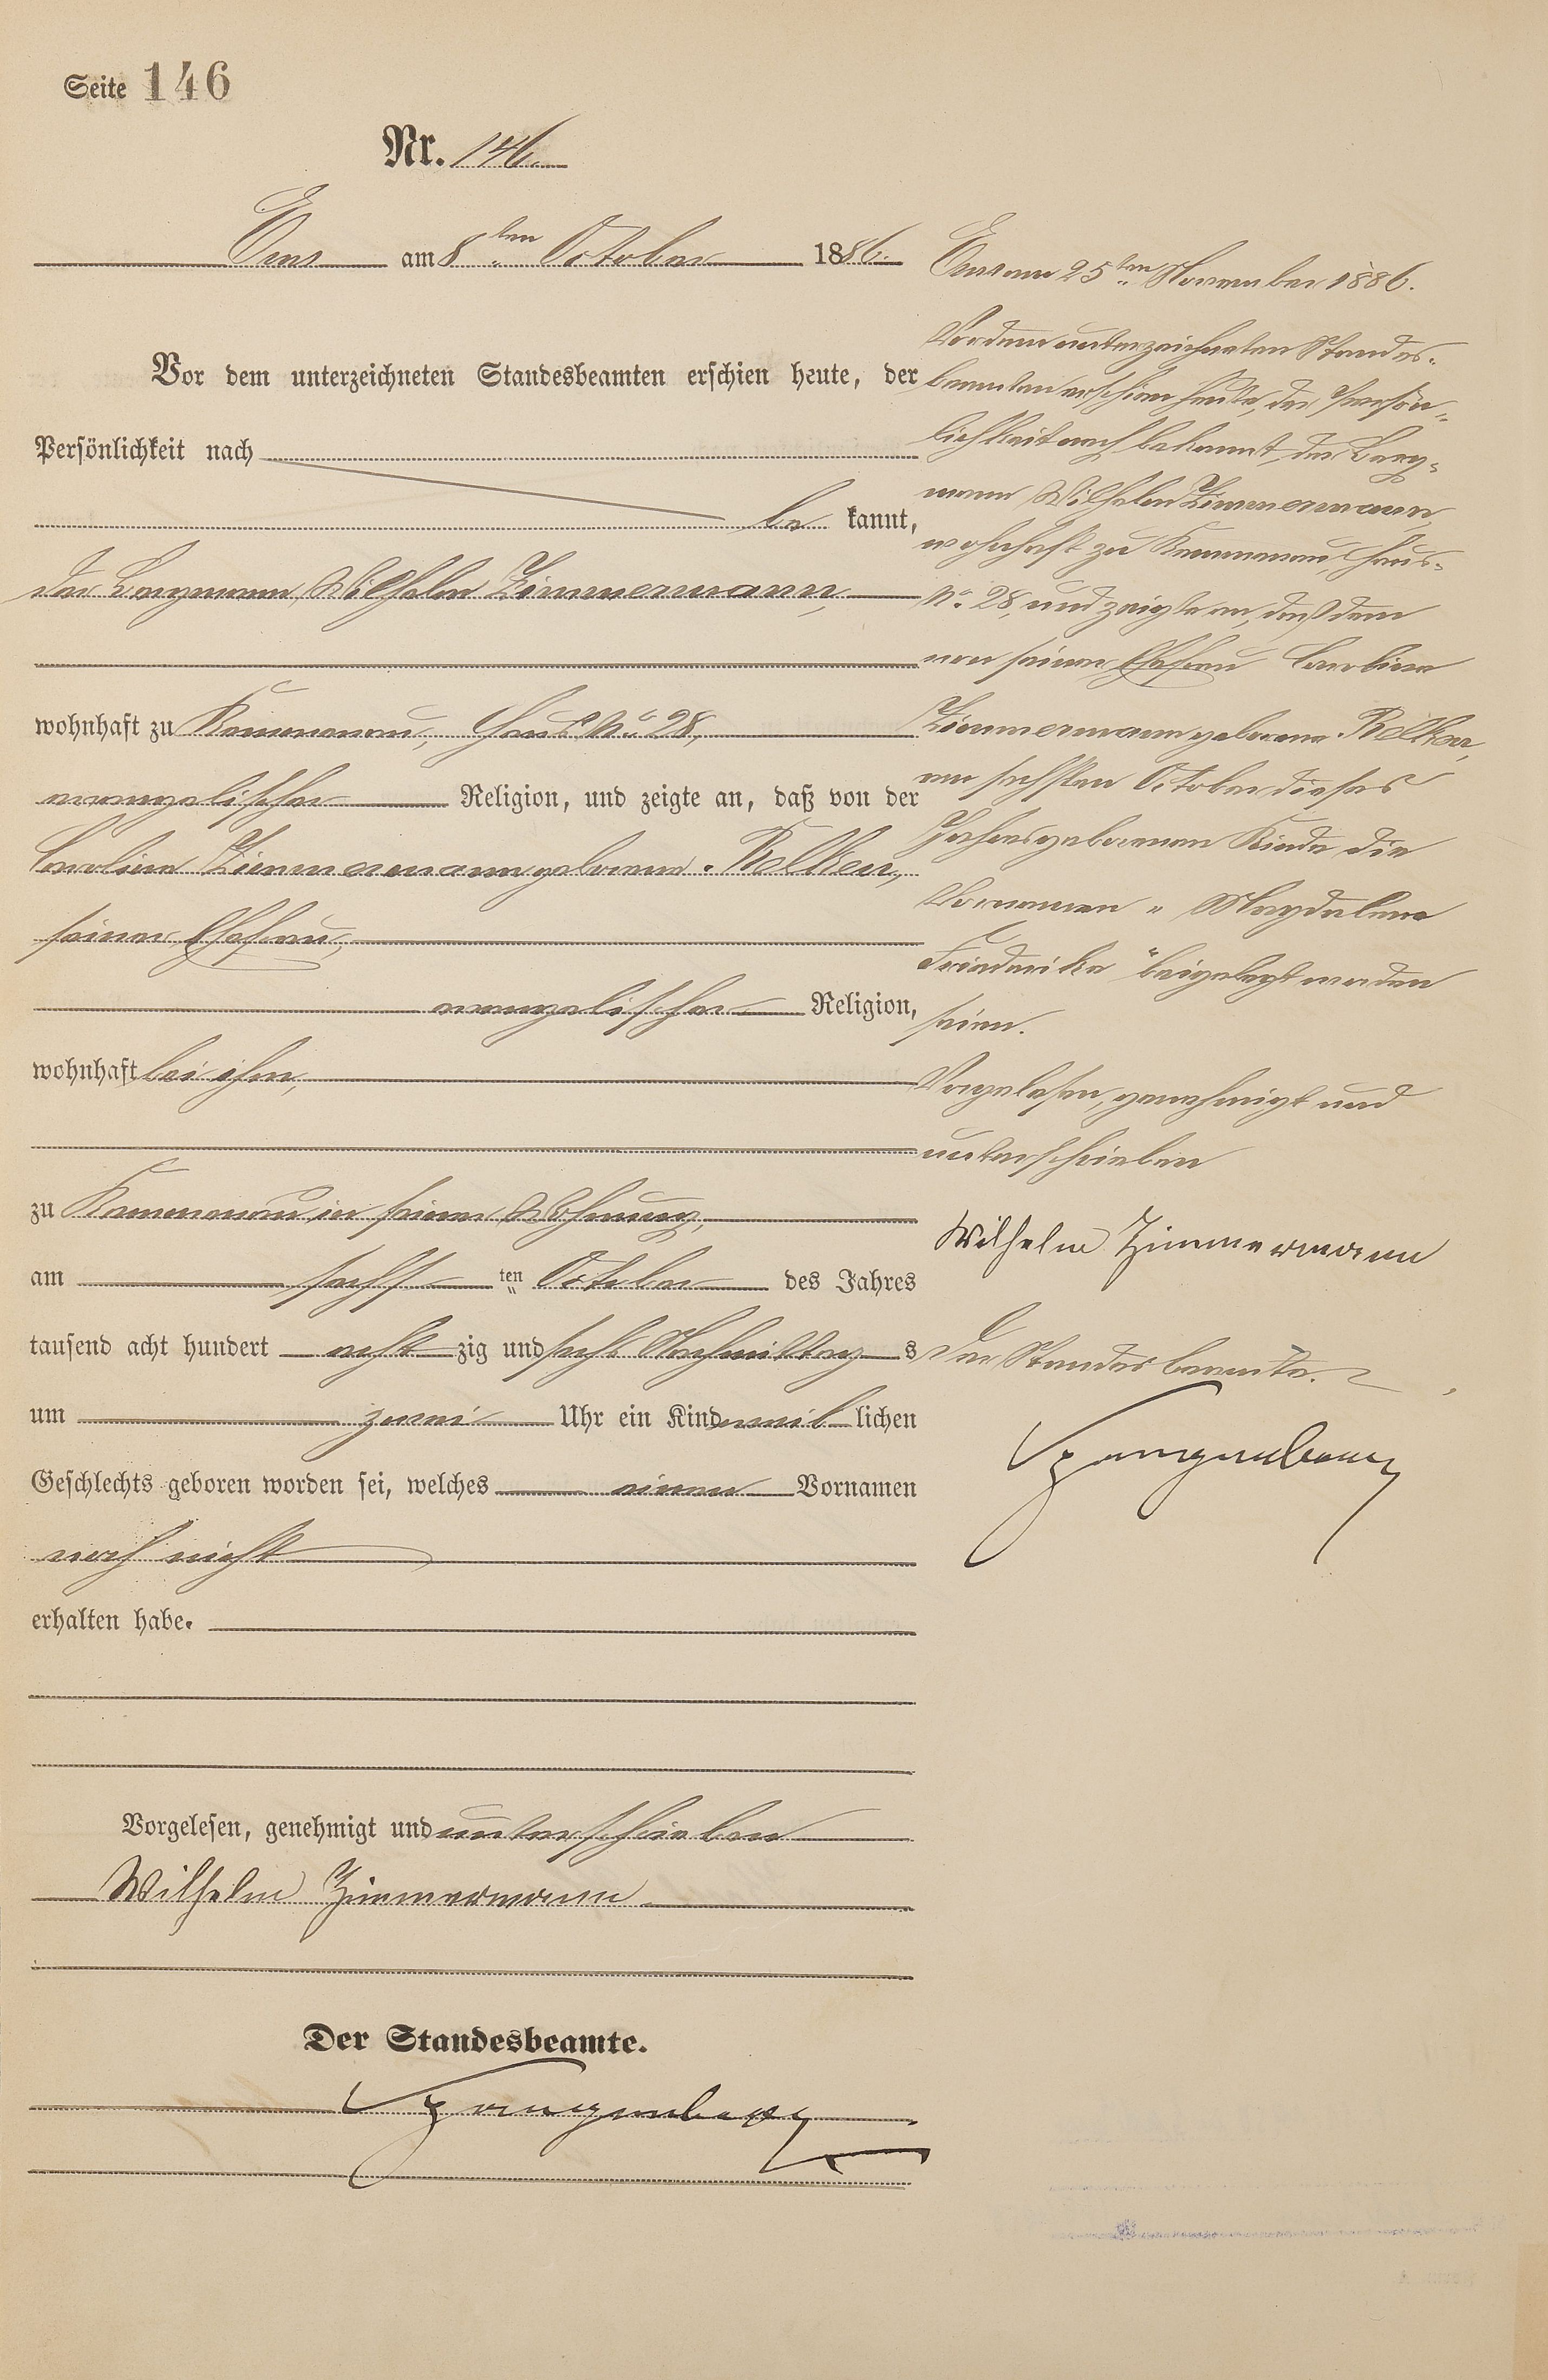 Seite 146
Nr. 146.
Ems am 8ten October 1886.
Vor dem unterzeichneten Standesbeamten erschien heute, der
Persönlichkeit nach
be kannt,
der Bergmann Wilhelm Zimmermann,
wohnhaft zu Kemmenau, Haus No. 28,
evangelischer Religion, und zeigte an, daß von der
Caroline Zimmermann geborene Bölker,
seiner Ehefrau,
evangelischer Religion,
wohnhaft bei ihm,
zu Kemmenau in seiner Wohnung,
am sechsten October des Jahres
tausend acht hundert acht zig und sechs Nachmittag s
um zwei Uhr ein Kind weib lichen
Geschlechts geboren worden sei, welches einen Vornamen
noch nicht
erhalten habe.
Vorgelesen, genehmigt und unterschrieben
Wilhelm Zimmermann
Der Standesbeamte.
Ems am 25ten November 1886.
Vor dem unterzeichneten Standes-
beamten erschien heute, der Persön-
lichkeit nach bekannt, der Berg-
mann Wilhelm Zimmermann,
wohnhaft zu Kemmenau, Haus-
No. 28, und zeigte an, daß dem
von seiner Ehefrau Caroline
Zimmermann geborene Bölker,
am sechsten October dieses
Jahres geborenen Kinde die
Vornamen „Magdalena
Friederike“ beigelegt worden
seien.
Vorgelesen, genehmigt und
unterschrieben
Wilhelm Zimmermann
Der Standesbeamte.